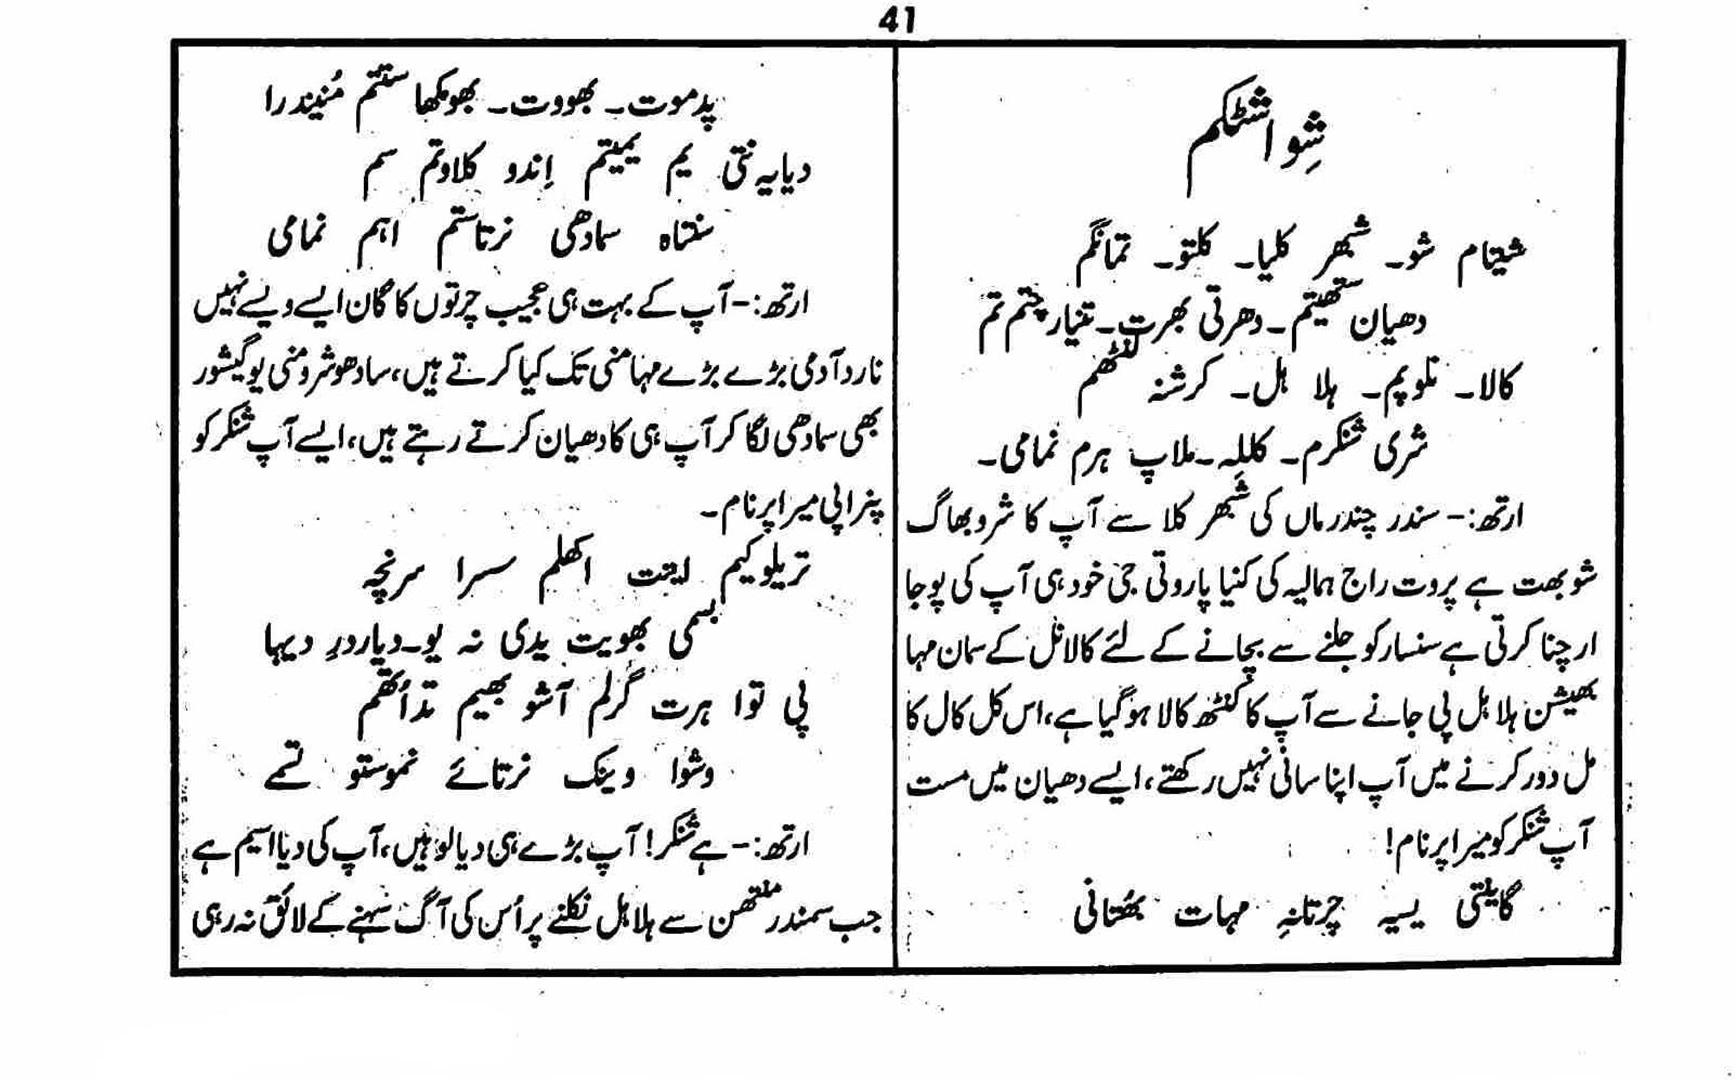 41
شِو اشٹکم
شیتام شو۔ شبھر کلیا۔ کلتو۔ تمانگم
دھیان ستھیتم۔ دھرتی بھرت۔ تنیارچتم تم
کالا۔ نلوپم۔ ہلا ہل۔ کرشنہ کنٹھم
شری شنکرم۔ کللِہ۔ ملاپ ہرم نمامی۔
ارتھ:- سندر چندرماں کی شبھر کلا سے آپ کا شروبھاگ
شوبھت ہے پروت راج ہمالیہ کی کنیا پاروتی جی خود ہی آپ کی پوجا
ارچنا کرتی ہے سنسار کو جلنے سے بچانے کے لئے کالانل کے سمان مہا
بھیشن ہلاہل پی جانے سے آپ کا کنٹھ کالا ہوگیا ہے، اس کل کال کا
مل دور کرنے میں آپ اپنا سانی نہیں رکھتے، ایسے دھیان میں مست
آپ شنکر کو میرا پرنام!
گاینتی یسیہ چرتانہِ مہات بھُتانی
پدموت۔ بھووت۔ بھومکھا ستتم مُنیندرا
دیایہ نتی یم یمیتم اِندو کلاوتم سم
سنتاہ سمادھی نرتاستم اہم نمامی
ارتھ:- آپ کے بہت ہی عجیب چرتوں کا گان ایسے ویسے نہیں
نارد آدمی بڑے بڑے مہامنی تک کیا کرتے ہیں، سادھو شرومنی یوگیشور
بھی سمادھی لگا کر آپ ہی کا دھیان کرتے رہتے ہیں، ایسے آپ شنکر کو
پنراپی میرا پرنام۔
تریلوکیم ایتت اکھلم سسرا سرنچہ
بسمی بھویت یدی نہ یو۔ دیاردرِ دیہا
پی توا ہرت گرلم آشو بھیم تداُتھم
وشوا وینک نرتائے نموستو تسمے
ارتھ:- ہے شنکر! آپ بڑے ہی دیالو ہیں، آپ کی دیا اسیم ہے
جب سمندر منتھن سے ہلاہل نکلنے پر اُس کی آگ سہنے کے لائق نہ رہی